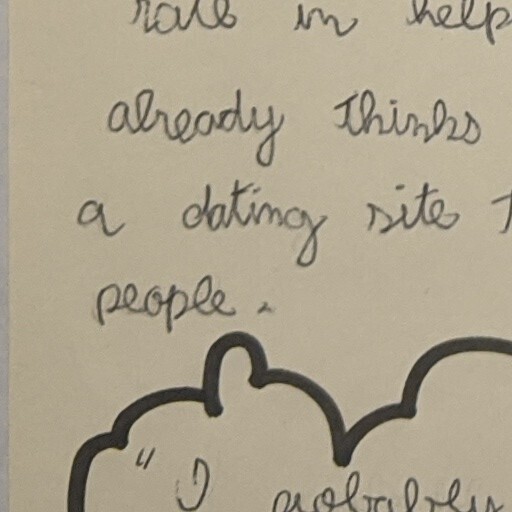 in help
already thinks
a dating site
people.
" I probably